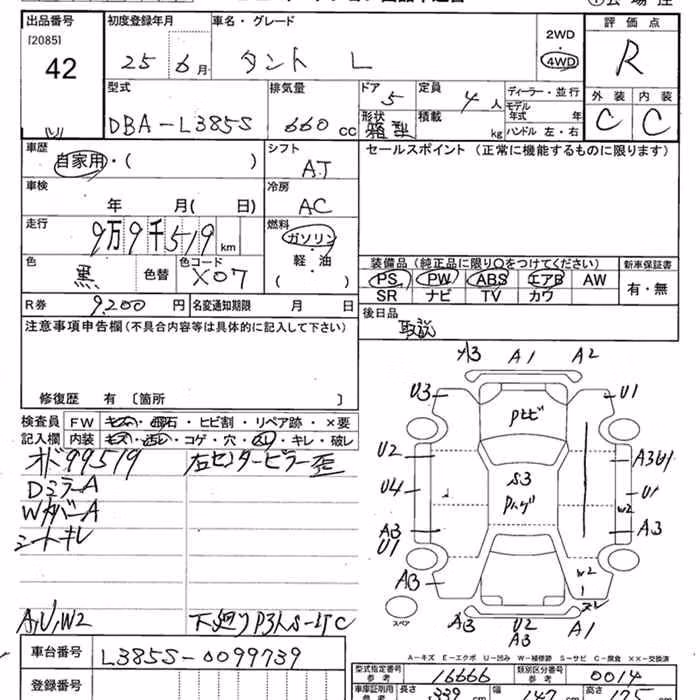 出品番号 初度登録年月 車名・グレード 評価点
[2085] 42 25 6月 タント L 2WD・4WD R
型式 排気量 ドア 5 定員 4人 ディーラー・並行 外装 内装
DBA-L385S 660cc 形状 箱型 積載 kg モデル年式 年 ハンドル 左・右 C C
車歴 シフト セールスポイント (正常に機能するものに限ります)
自家用・( ) AT
車検 冷房
年 月( 日) AC
走行 燃料
9万9千519km ガソリン
軽・油
( )
色 黒 色替 色コード X07
装備品 (純正品に限り○をつけてください) 新車保証書
PS PW ABS エアB AW 有・無
SR ナビ TV カワ
R券 9,200円 名変通知期限 月 日 後日品
取説
注意事項申告欄(不具合内容等は具体的に記入して下さい)
修復歴 有 〔箇所 〕
検査員 FW キズ・飛石・ヒビ割・リペア跡・×要
記入欄 内装 キズ・汚レ・コゲ・穴・スレ・キレ・破レ
オド99519 左センターピラー歪
DミラーA
WカバーA
シートキレ
A,U,W2 下廻りP3
A3 A1 A2
U3 U1
Pヒビ
U2 A3U1
S3
U4 U1
W2
A3 A3
U1
W2
A3
スペア A3 U2 A1
A3
A-キズ E-エクボ U-凹み W-補修跡 S-サビ C-腐食 ××-交換済
車台番号 L385S-0099739
型式指定番号 参考 16666 類別区分番号 参考 0014
登録番号
車庫証明用 参考 長さ 339cm 幅 147cm 高さ 175cm